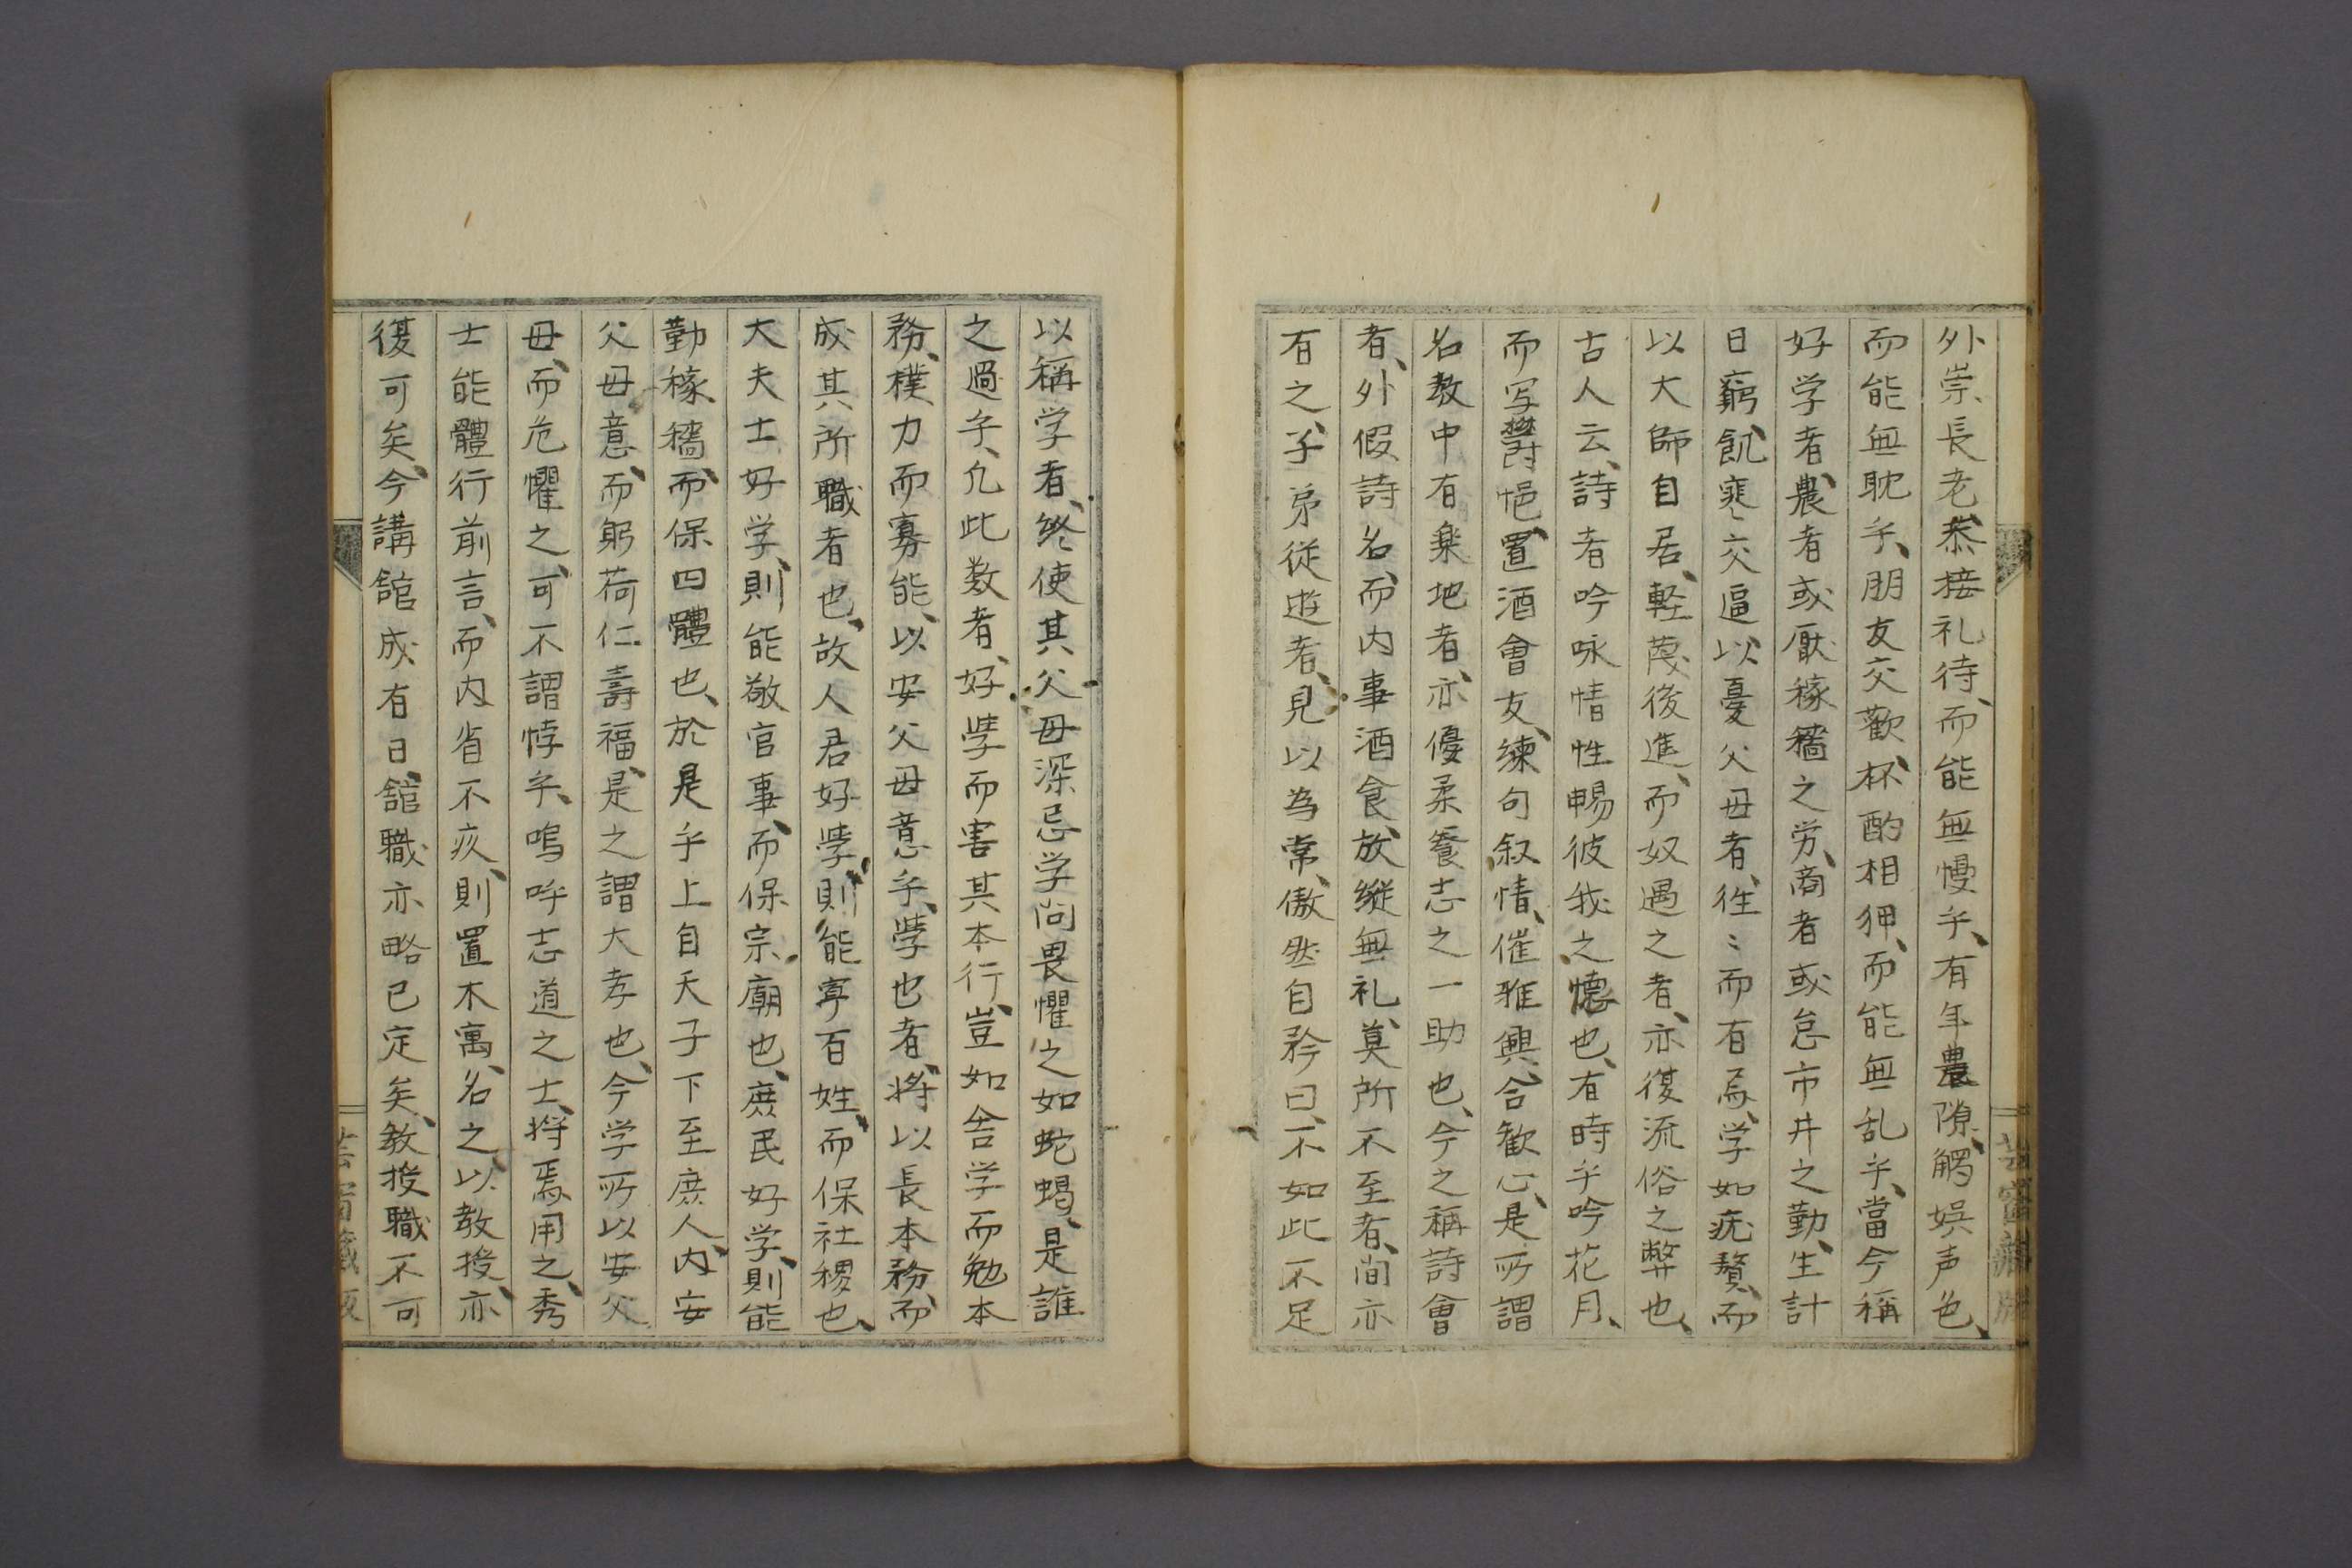 外崇長老、恭接礼待、而能無慢乎、有年農隙、觸娯声色、
而能無耽乎、朋友交歡、杯酌相狎、而能無乱乎、當今稱
好学者、農者或厭稼穡之労、商者或怠市井之勤、生計
日窮、飢寒交逼、以憂父母者、徃〻而有焉、学如疣贅、而
以大師自居、軽蔑後進、而奴遇之者、亦復流俗之弊也、
古人云、詩者吟咏情性、暢彼我之懐也、有時乎吟花月、
而写欝悒、置酒會友、練句叙情、催雅興、合歓心、是所謂
名教中有楽地者、亦優柔養志之一助也、今之稱詩會
者、外假詩名、而内事酒食、放縦無礼、莫所不至者、間亦
有之、子弟従遊者、見以為常、傲然自矜曰、不如此不足
芸窗藏版
以稱学者、終使其父母深忌学問畏懼之如蛇蝎、是誰
之過乎、凢此数者、好學而害其本行、豈如舎学而勉本
務、樸力而寡能、以安父母意乎、學也者、将以長本務、而
成其所職者也、故人君好學、則能寧百姓、而保社稷也、
大夫士好学、則能敬官事、而保宗廟也、庶民好学、則能
勤稼穡、而保四體也、於是乎上自天子下至庶人、内安
父母意、而躬荷仁壽福、是之謂大孝也、今学所以安父
母、而危懼之、可不謂悖乎、嗚呼志道之士、将焉用之、秀
士能體行前言、而内省不疚、則置木寓、名之以教授、亦
復可矣、今講舘成有日、舘職亦略已定矣、教授職不可